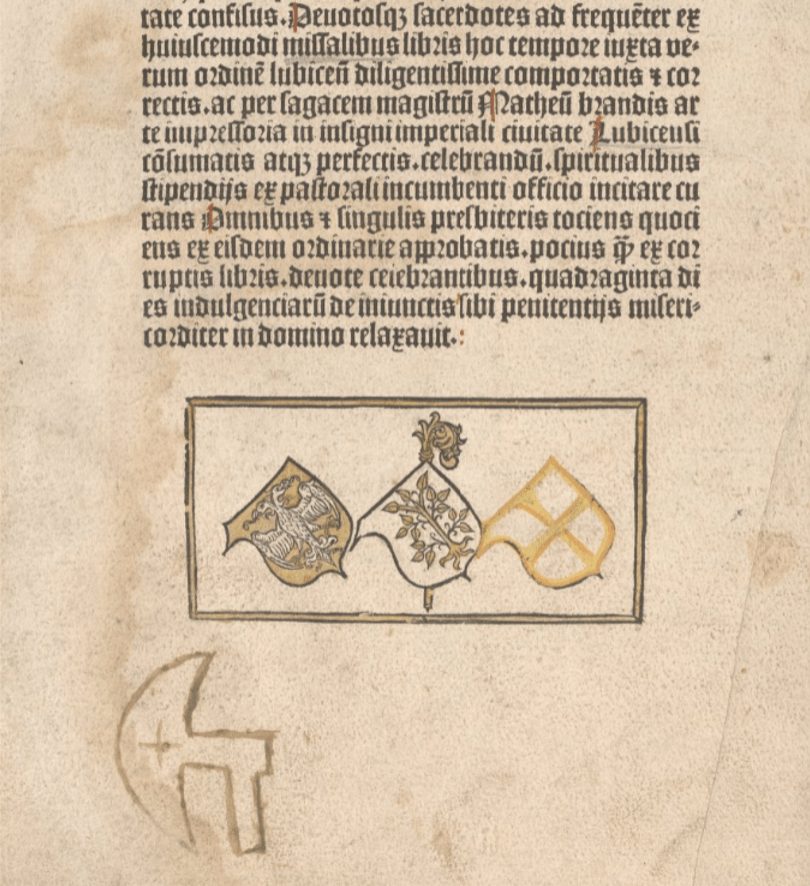 tate confisus. Deuotosqꝫ sacerdotes ad frequẽter ex
huiuscemodi missalibus libris hoc tempore iuxta ve⸗
rum ordinẽ lubiceñ diligentissime comportatis ⁊ cor
rectis. ac per sagacem magistrũ Matheũ brandis ar
te impressoria in insigni imperiali ciuitate Lubicensi
cõsumatis atqꝫ perfectis. celebrandũ. spiritualibus
stipendijs ex pastorali incumbenti officio incitare cu
rans Omnibus ⁊ singulis presbiteris tociens quoci
ens ex eisdem ordinarie approbatis. pocius qꝫ̃ ex cor
ruptis libris. deuote celebrantibus. quadraginta di
es indulgenciarũ de iniunctis sibi penitentijs miseri⸗
corditer in domino relaxauit.: